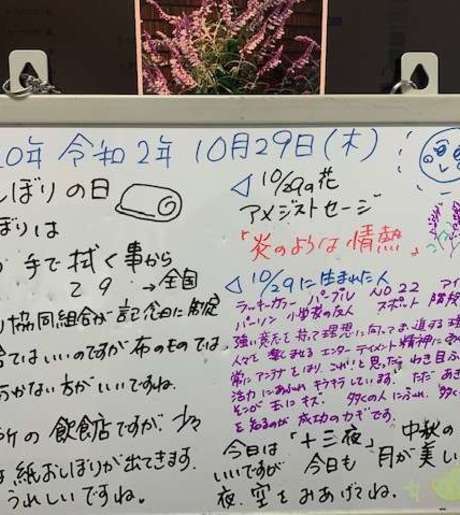 20年 令和2年 10月29日(木)
しぼりの日
ぼりは
手で拭く事から
29 → 全国
協同組合が記念日に制定
ではいいのですが布のものでは
かない方がいいですね。
所の飲食店ですが、少々
紙おしぼりが出てきます。
うれしいですね。
◁ 10/29の花
アメジストセージ
「炎のような情熱」
◁ 10/29に生まれた人
ラッキーカラー パープル NO 22 アイ
パーソン 小学校の友人 スポット 階段
強い意志を持って理想に向って
エンターテイメント精神に
常にアンテナをはり、これ!と思ったら わき目
活力にあふれ キラキラしています。ただ あき
そこが玉にキズ。 多くの人にふれ、多く
を知るのが 成功のカギです。
今日は「十三夜」 中秋の
いいですが 今日も 月が美し
夜、空を みあげてね。